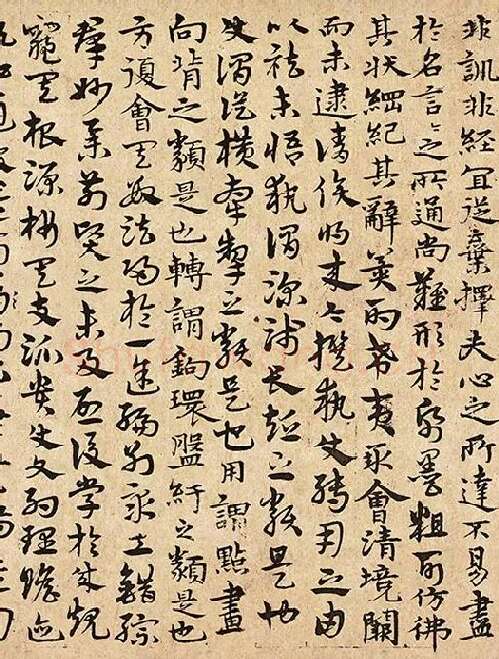 非訓非經宜從棄擇夫心之所達不易盡
於名言言之所通尚難形於紙墨粗可仿佛
其狀綱紀其辭冀酌希夷取會清境闕
而未逮請俟將來今撰執使轉用之由
以祛未悟執謂深淺長短之類是也
使謂縱橫牽掣之類是也用謂點畫
向背之類是也轉謂鉤環盤紆之類是也
方復會其數法歸於一途編列眾工錯綜
群妙舉前賢之未及啟後學於成規
窺其根源析其支派貴使文約理贍迹